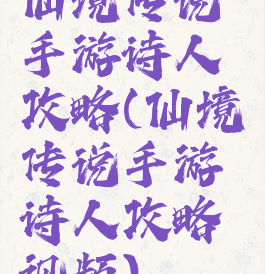 仙境传说
手游诗人
攻略(仙境
传说手游
诗人攻略
视频)